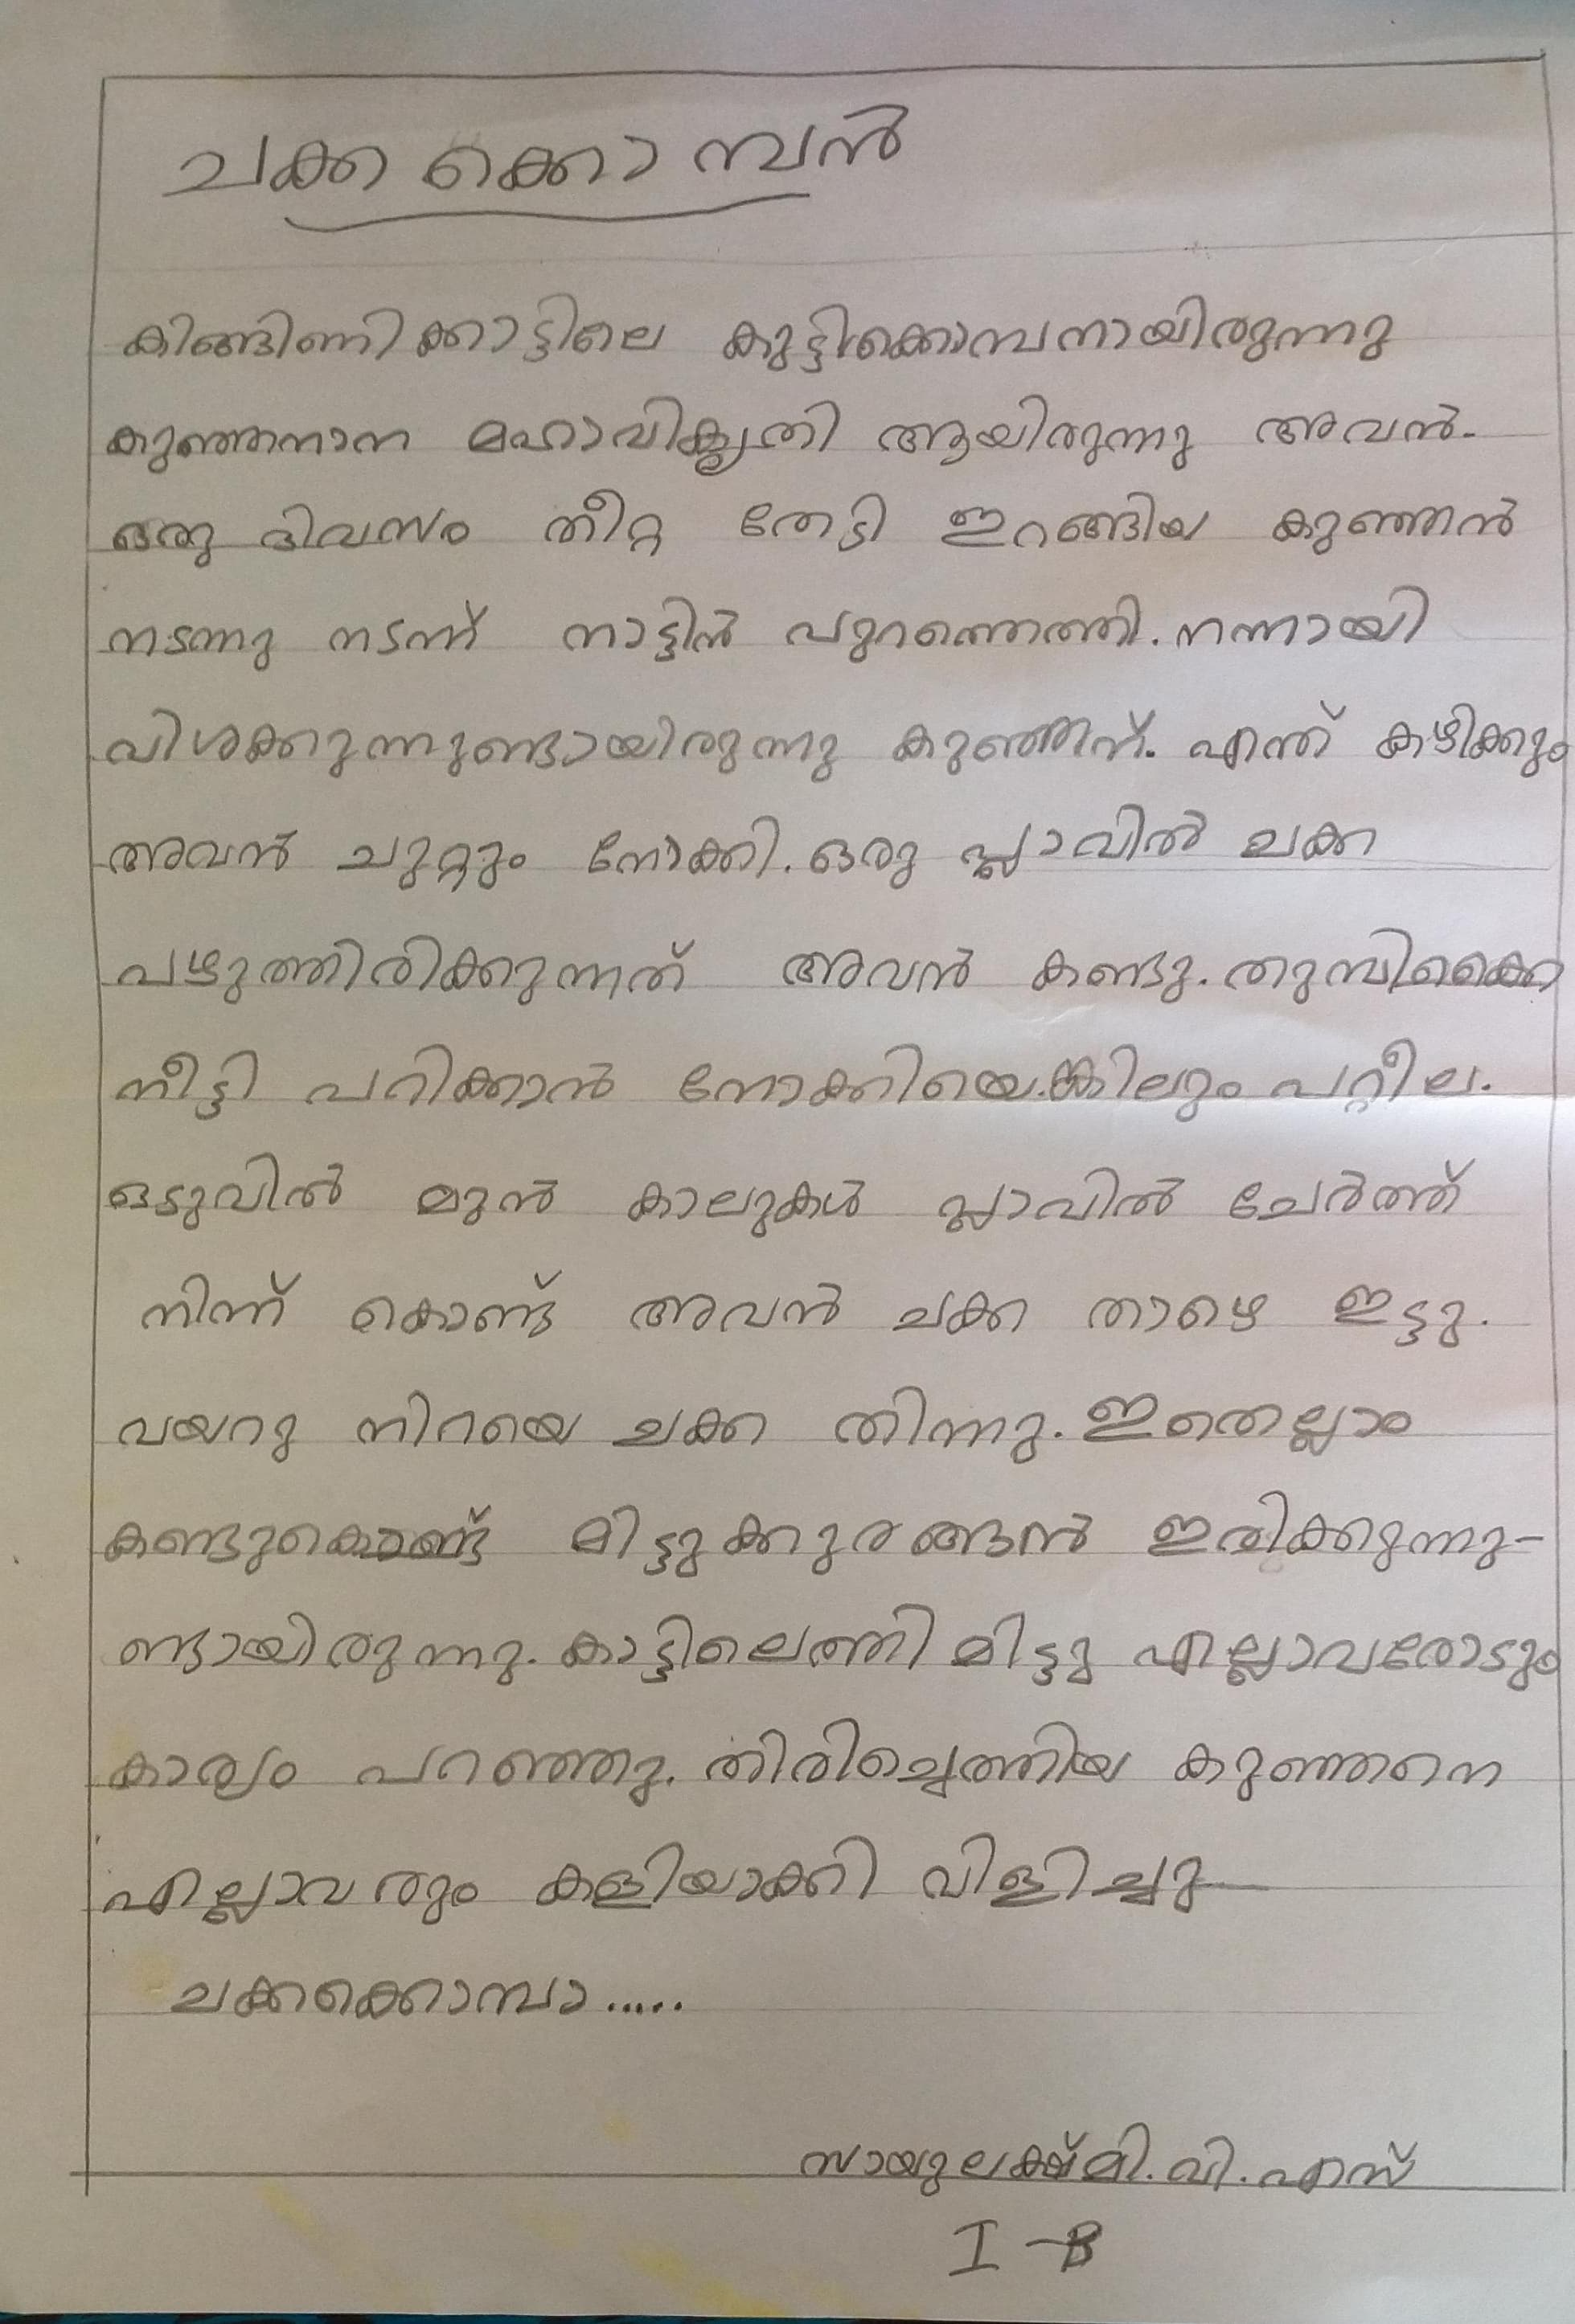 ചക്ക ക്കൊമ്പൻ
കിങ്ങിണിക്കാട്ടിലെ കുട്ടിക്കൊമ്പനായിരുന്നു
കുഞ്ഞനാന മഹാവികൃതി ആയിരുന്നു അവൻ.
ഒരു ദിവസം തീറ്റ തേടി ഇറങ്ങിയ കുഞ്ഞൻ
നടന്നു നടന്ന് നാട്ടിൻ പുറത്തെത്തി. നന്നായി
വിശക്കുന്നുണ്ടായിരുന്നു കുഞ്ഞന്. എന്ത് കഴിക്കും
അവൻ ചുറ്റും നോക്കി. ഒരു പ്ലാവിൽ ചക്ക
പഴുത്തിരിക്കുന്നത് അവൻ കണ്ടു. തുമ്പിക്കൈ
നീട്ടി പറിക്കാൻ നോക്കിയെങ്കിലും പറ്റീല.
ഒടുവിൽ മുൻ കാലുകൾ പ്ലാവിൽ ചേർത്ത്
നിന്ന് കൊണ്ട് അവൻ ചക്ക താഴെ ഇട്ടു.
വയറു നിറയെ ചക്ക തിന്നു. ഇതെല്ലാം
കണ്ടുകൊണ്ട് മിട്ടുക്കുരങ്ങൻ ഇരിക്കുന്നു-
ണ്ടായിരുന്നു. കാട്ടിലെത്തി മിട്ടു എല്ലാവരോടും
കാര്യം പറഞ്ഞു. തിരിച്ചെത്തിയ കുഞ്ഞനെ
എല്ലാവരും കളിയാക്കി വിളിച്ചു
ചക്കക്കൊമ്പാ.....
സായുലക്ഷ്മി. വി. എസ്
I - B